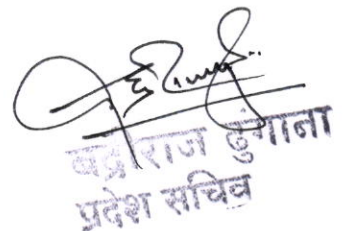 बद्रीराज ढुंगाना
प्रदेश सचिव